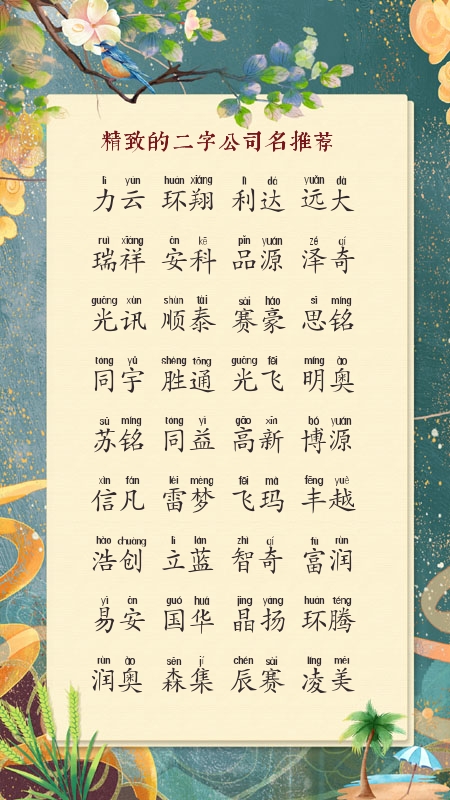 精致的二字公司名推荐
lì yún huán xiáng lì dá yuǎn dà
力云 环翔 利达 远大
ruì xiáng ān kē pǐn yuán zé qí
瑞祥 安科 品源 泽奇
guāng xùn shùn tài sài háo sī míng
光讯 顺泰 赛豪 思铭
tóng yǔ shèng tōng guāng fēi míng ào
同宇 胜通 光飞 明奥
sū míng tóng yì gāo xīn bó yuán
苏铭 同益 高新 博源
xìn fán léi mèng fēi mǎ fēng yuè
信凡 雷梦 飞玛 丰越
hào chuàng lì lán zhì qí fù rùn
浩创 立蓝 智奇 富润
yì ān guó huá jīng yáng huán téng
易安 国华 晶扬 环腾
rùn ào sēn jí chén sài líng měi
润奥 森集 辰赛 凌美